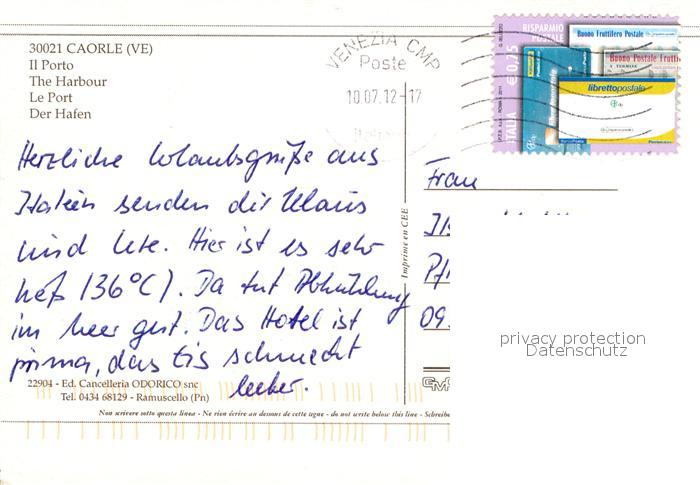 30021 CAORLE (VE)
Il Porto
The Harbour
Le Port
Der Hafen
VENEZIA CMP
Poste
10.07.12-17
RISPARMIO
POSTALE
€ 0,75
ITALIA
Buono Fruttifero Postale
Buono Postale Frutti
librettopostale
Herzliche Urlaubsgrüße aus
Italien senden dir Klaus
und Ute. Hier ist es sehr
heiß (36°C). Da tut Abkühlung
im Meer gut. Das Hotel ist
prima, das Eis schmeckt
lecker.
Frau
09.
Imprimé en CEE
privacy protection
Datenschutz
22904 - Ed. Cancelleria ODORICO snc
Tel. 0434 68129 - Ramuscello (Pn)
Non scrivere sotto questa linea - Ne rien écrire au dessous de cette ligne - do not write below this line - Schreibe